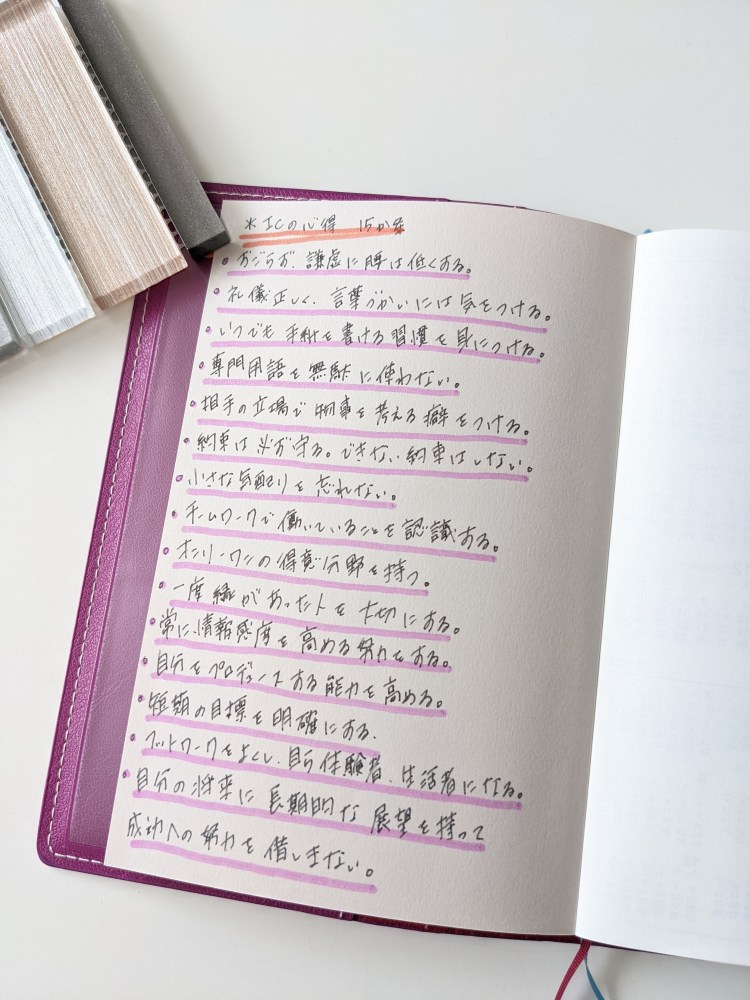 ※ICの心得 15か条
・おごらず、謙虚に腰は低くする。
・礼儀正しく、言葉づかいには気をつける。
・いつでも手紙を書ける習慣を身につける。
・専門用語を無駄に使わない。
・相手の立場で物事を考える癖をつける。
・約束は必ず守る。できない約束はしない。
・小さな気配りを忘れない。
・チームワークで働いていることを認識する。
・オンリーワンの得意分野を持つ。
・一度縁があった人を大切にする。
・常に、情報感度を高める努力をする。
・自分をプロデュースする能力を高める。
・短期の目標を明確にする。
・フットワークをよくし、自ら体験者、生活者になる。
・自分の将来に長期的な展望を持って
成功への努力を惜しまない。